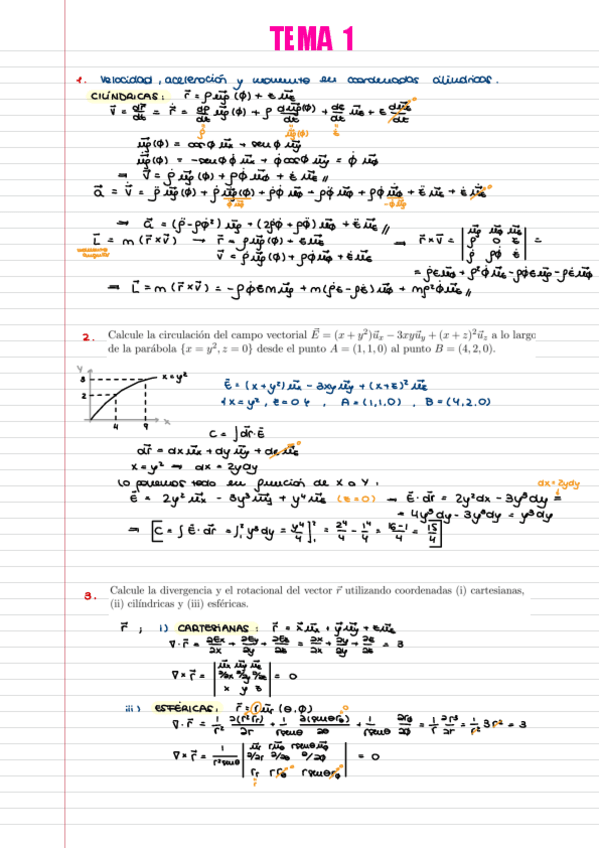 TEMA 1
1. Velocidad, aceleración y momento en coordenadas cilíndricas.
CILÍNDRICAS: r⃗ = ρ u⃗ρ (φ) + z u⃗z
v⃗ = dr⃗/dt = r⃗˙ = dρ/dt u⃗ρ(φ) + ρ du⃗ρ(φ)/dt + dz/dt u⃗z + z du⃗z/dt 0
u⃗ρ(φ) = cosφ u⃗x + senφ u⃗y
u⃗˙ρ(φ) = -senφ φ̇ u⃗x + φ̇ cosφ u⃗y = φ̇ u⃗φ
⇒ v⃗ = ρ̇ u⃗ρ(φ) + ρφ̇ u⃗φ + ż u⃗z //
a⃗ = v⃗˙ = ρ̈ u⃗ρ(φ) + ρ̇ u⃗˙ρ(φ) + ρ̇φ̇ u⃗φ + ρφ̈ u⃗φ + ρφ̇ u⃗˙φ + z̈ u⃗z + ż u⃗˙z 0
⇒ a⃗ = (ρ̈ - ρφ̇²) u⃗ρ + (2ρ̇φ̇ + ρφ̈) u⃗φ + z̈ u⃗z //
L⃗ = m (r⃗ × v⃗) → r⃗ = ρ u⃗ρ(φ) + z u⃗z ⇒ r⃗ × v⃗ = | u⃗ρ u⃗φ u⃗z | =
momento angular v⃗ = ρ̇ u⃗ρ(φ) + ρφ̇ u⃗φ + ż u⃗z | ρ 0 z |
| ρ̇ ρφ̇ ż |
= ρ̇z u⃗φ + ρ²φ̇ u⃗z - ρφ̇z u⃗ρ - ρż u⃗φ
⇒ L⃗ = m (r⃗ × v⃗) = -ρφ̇zm u⃗ρ + m(ρ̇z - ρż) u⃗φ + mρ²φ̇ u⃗z //
2. Calcule la circulación del campo vectorial E⃗ = (x + y²)u⃗x − 3xyu⃗y + (x + z)²u⃗z a lo largo
de la parábola {x = y², z = 0} desde el punto A = (1, 1, 0) al punto B = (4, 2, 0).
y
3
2
4 9 x
x = y²
E⃗ = (x + y²) u⃗x - 3xy u⃗y + (x + z)² u⃗z
{x = y², z = 0} , A = (1,1,0) , B = (4,2,0)
C = ∫ dr⃗·E⃗
dr⃗ = dx u⃗x + dy u⃗y + dz u⃗z 0
x = y² ⇒ dx = 2ydy
Lo ponemos todo en función de x o y:
dx = 2ydy
E⃗ = 2y² u⃗x - 3y³ u⃗y + y⁴ u⃗z (z = 0) ⇒ E⃗·dr⃗ = 2y²dx - 3y³dy =
= 4y³dy - 3y³dy = y³dy
⇒ [C = ∫ E⃗·dr⃗ = ∫₁² y³dy = y⁴/4 ]₁² = 2⁴/4 - 1⁴/4 = 16-1/4 = 15/4]
3. Calcule la divergencia y el rotacional del vector r⃗ utilizando coordenadas (i) cartesianas,
(ii) cilíndricas y (iii) esféricas.
r⃗ ; i) CARTESIANAS: r⃗ = x u⃗x + y u⃗y + z u⃗z
∇·r⃗ = ∂Ex/∂x + ∂Ey/∂y + ∂Ez/∂z = ∂x/∂x + ∂y/∂y + ∂z/∂z = 3
∇×r⃗ = | u⃗x u⃗y u⃗z |
| ∂/∂x ∂/∂y ∂/∂z | = 0
| x y z |
iii) ESFÉRICAS: r⃗ = r u⃗r (θ,φ)
∇·r⃗ = 1/r² ∂(r²rr)/∂r + 1/rsenθ ∂(senθrθ)/∂θ + 1/rsenθ ∂rφ/∂φ = 1/r² ∂r³/∂r = 1/r² 3r² = 3
∇×r⃗ = 1/r²senθ | u⃗r ru⃗θ rsenθu⃗φ |
| ∂/∂r ∂/∂θ ∂/∂φ | = 0
| rr rrθ 0 rsenθrφ 0 |
r